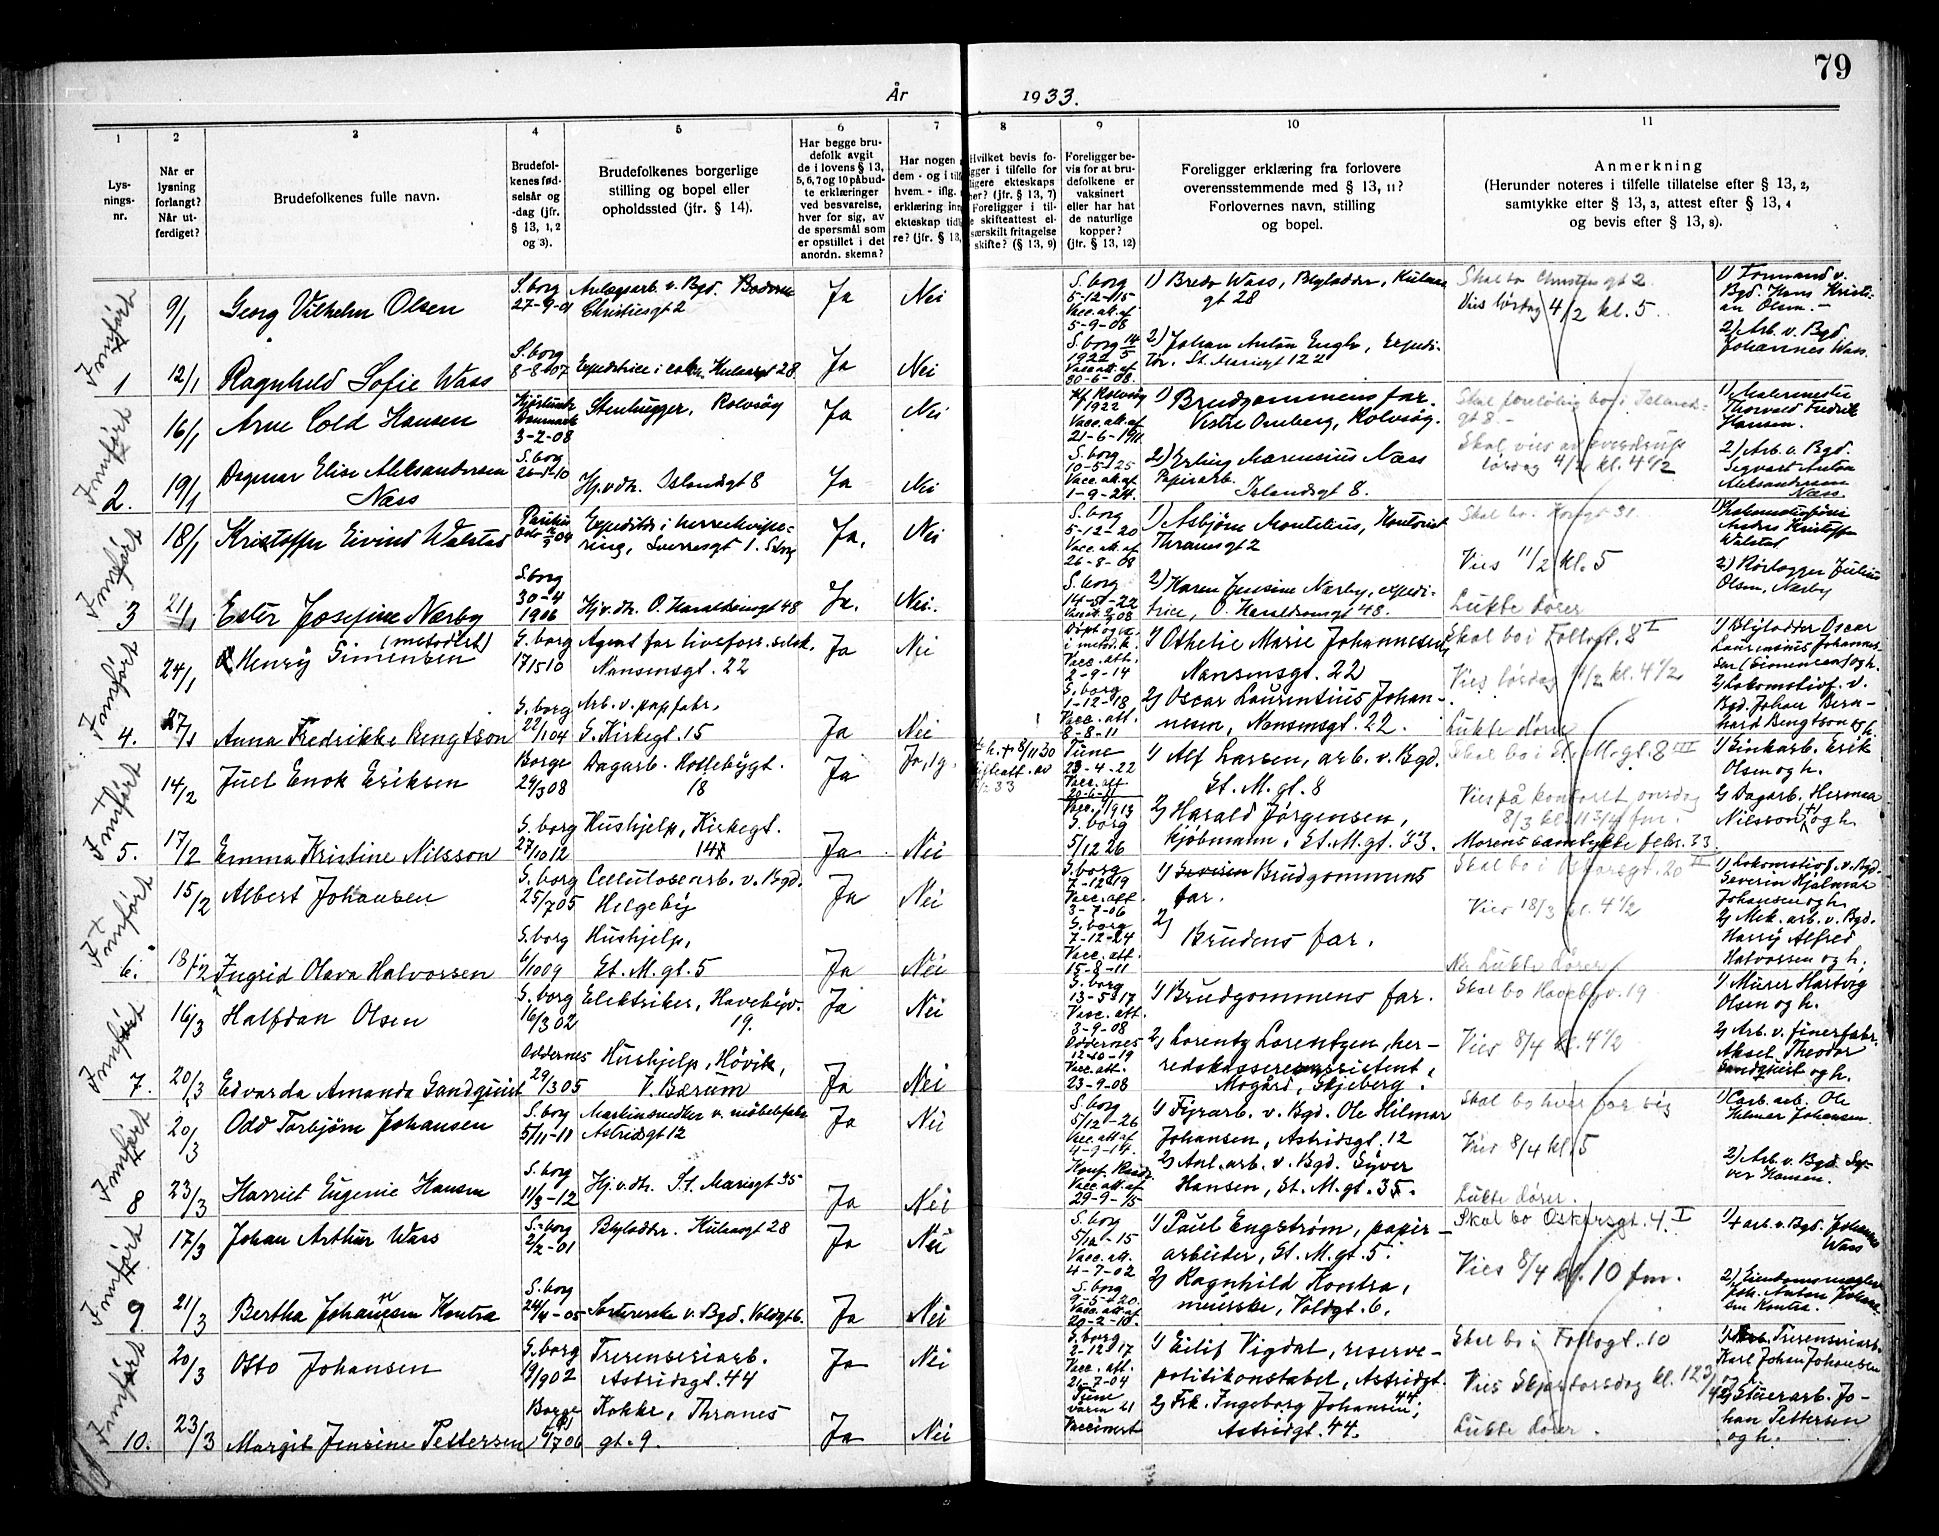 79
År 1933.
1
2
3
4
5
6
7
8
9
10
11
Lys-
nings-
nr.
Når er
lysning
forlangt?
Når ut-
ferdiget?
Brudefolkenes fulle navn.
Brudefol-
kenes fød-
selsår og
-dag (jfr.
§ 13, 1, 2
og 3).
Brudefolkenes borgerlige
stilling og bopel eller
opholdssted (jfr. § 14).
Har begge bru-
defolk avgit
de i lovens § 13,
5, 6, 7 og 10 påbud-
te erklæringer
ved besvarelse,
hver for sig, av
de spørsmål som
er opstillet i det
anordn. skema?
Har nogen
dem - og i til
hvem - iflg.
erklæring inn
ekteskap tid
re? (jfr. § 13,
Hvilket bevis fo-
gger i tilfelle for
ligere ekteskaps
her? (jfr. § 13, 7)
Foreligger i til-
e skifteattest el-
særskilt fritagelse
skifte? (§ 13, 9)
Foreligger be-
vis for at brude-
folkene er
vaksinert
eller har hat
de naturlige
kopper?
(jfr. § 13, 12)
Foreligger erklæring fra forlovere
overensstemmende med § 13, 11?
Forlovernes navn, stilling
og bopel.
Anmerkning
(Herunder noteres i tilfelle tillatelse efter § 13, 2,
samtykke efter § 13, 3, attest efter § 13, 4
og bevis efter § 13, 8).
Innført
1
9/1 Georg Vilhelm Olsen
S.borg
27-9-01
Anlægsarb. v. Bgd.
Christiesgt 2
Ja Nei
S.borg
5-12-15
Vacc. att. af
5-9-08
1) Bredo Wass, Blyladder, Kulaas
gt 28
Skal bo Christiesgt 2
Vies lørdag 4/2 kl. 5
1) Formand v.
Bgd. Hans Kristi-
an Olsen.
12/1 Ragnhild Sofie Wass
S.borg
8-8-07
Expeditrice Kulaasgt 28
Ja Nei
S.borg 14/5
1922
Vacc. att. af
30-6-08
2) Johan Anton Engh, Expedi-
tør. St. Mariegt 122
2) Arb. v. Bgd
Johannes Wass.
Innført
2.
16/1 Arne Cold Hansen
Danmark
3-2-08
Stenhugger, Rolvsøy
Ja Nei
Kf. Rolvsøy
1922
Vacc. att. af
21-6-1911
1) Brudgommens far.
Vestre Omberg, Rolvsøy.
Skal foreløbig bo i Islands-
gt 8. -
1) Malermester
Thorvald Fredrik
Hansen.
19/1 Dagmar Elise Aleksandersen
Næss
S.borg
26-1-10
Hj.v.dr. Islandsgt 8
Ja Nei
S.borg
10-5-25
Vacc. att. af
1-9-24.
2) Erling Marensius Næss
Papirarb. Islandsgt 8.
Skal vies av Sverdrup
lørdag 4/2 kl. 4 1/2
2) Arb. v. Bgd.
Segvart Anton
Aleksandersen
Næss
Innført
3
18/1 Kristoffer Eivind Walstad
Expeditør i herreekvipe-
ring, Sverresgt 1. S.borg
Ja. Nei
S.borg
5-12-20
Vacc. att. af
26-8-08
1) Asbjørn Montelius, Kontorist
Thranesgt 2
Skal bo. Kongt 31.
Vies 11/2 kl. 5
Andrs Kristoffer
Walstad
21/1 Ester Josefine Nærby
S.borg
30-4
1906
Hj.v.dr. O. Haraldsensgt 48
Ja. Nei.
S.borg
14-5-22
2) Karen Jensine Nærby, expedi-
trice, O. Haraldsensgt 48.
Lukte dører
2) Rørlægger Julius
Olsen, Nærby
Innført
4.
24/1 Henry Simensen (metodist)
S.borg
17 15 10
Agent for livsfors. selsk.
Nansensgt. 22
Ja Nei
Døpt og
i metod. k.
Vacc. att.
2-9-14
1) Othelie Marie Johannesen,
Nansensgt. 22
Skal bo i Follogt. 8 I
Vies lørdag 11/2 kl. 4 1/2
1) Blyladder Oscar
Laurensius Johannes-
sen (Simensen) og h.
27/1 Anna Fredrikke Bengtson
S.borg
22/1 04
Arb. v. papfabr.
G. Kirkegt. 15
Ja Nei
S.borg
1-12-18
Vacc. att.
8-8-11
2) Oscar Laurentius Johan-
nesen, Nansensgt. 22.
Lukte dører
2) Lokomotivf. v.
Bgd. Johan Bern-
hard Bengtson og h.
Innført
5.
14/2 Juel Enok Eriksen
Borge
29/3 08
Dagarb. Hollebygt.
18
Ja Ja, 1 g.
h. + 8/11 30
Tune
23-4-22
Vacc. att
20-6-11
1) Alf Larsen, arb. v. Bgd.
St. M. gt. 8
Skal bo i St. M. gt. 8 III
Vies på kontoret onsdag
8/3 kl. 11 3/4 fm.
1) Sinkarb. Erik
Olsen og h.
17/2 Emma Kristine Nilsson
S.borg
27/10 12
Hushjelp, Kirkegt.
147
Ja Nei
Vacc. 1/1913
S.borg
5/12 26
2) Harald Jørgensen,
kjøbmann i St. M. gt. 33.
Morens samtykke febr. 33
2) Dagarb. Herman
Nilsson + og h.
Innført
6.
15/2 Albert Johansen
S.borg
25/7 05
Cellulosearb. v. Bgd.
Helgeby
Ja Nei
S.borg
7-12-19
Vacc. att.
3-7-06
1) Severin Brudgommens
far.
Skal bo i Oskarsgt. 20 II
Vies 18/3 kl. 4 1/2
1) Lokomotivf. v. Bgd.
Severin Hjalmar
Johansen og h.
18/2 Ingrid Olava Halvorsen
S.borg
6/10 09
Hushjelp,
St. M. gt. 5
Ja Nei
S.borg
7-12-24
Vacc. att.
15-8-11
2) Brudens far.
Lukte dører
2) Mek. arb. v. Bgd.
Harry Alfred
Halvorsen og h.
Innført
7.
16/3 Halfdan Olsen
S.borg
16/3 02
Elektriker, Havebyv.
19.
Ja Nei
S.borg
13-5-17
Vacc. att.
3-9-08
1) Brudgommens far.
Skal bo Havebyv. 19
Vies 8/4 kl. 4 1/2
1) Murer Hartvig
Olsen og h.
20/3 Edvarda Amanda Sandquist
Oddernes
29/3 05
Hushjelp, Høvik,
V. Bærum
Ja Nei
Oddernes
12-10-19
Vacc. att.
23-9-08
2) Lorentz Lorentzen, her-
redskasserer assistent,
Mogård, Skjeberg.
2) Arb. v. finerfabr.
Aksel Theodor
Sandquist og h.
Innført
8
20/3 Odd Torbjørn Johansen
S.borg
5/11-11
Maskinsnedker v. møbelfabr.
Astridsgt 12
Ja Nei
S.borg
5/12-26
Vacc. att. af
4-9-14.
1) Fyrarb. v. Bgd. Ole Hilmar
Johansen, Astridsgt. 12
Skal bo hver for sig
Vies 8/4 kl. 5
1) Carb. arb. Ole
Hilmar Johansen.
23/3 Harriet Eugenie Hansen
S.borg
11/3-12
Hj.v.dr. St. Mariegt 35
Ja Nei
Vacc. att. af
29-9-15
2) Anl. arb. v. Bgd. Syver
Hansen, St. M. gt. 35.
Lukte dører.
2) Arb. v. Bgd. Sy-
ver Hansen.
Innført
9
17/3 Johan Arthur Wass
S.borg
2/2-01
Blyladder. Kulaasgt 28
Ja Nei
S.borg
5/12-15
Vacc. att.
4-7-02
1) Paul Engstrøm, papir-
arbeider, St. M. gt. 5.
Skal bo Oskarsgt. 4. I
Vies 8/4 kl. 10 fm.
1) Arb. v. Bgd. Johannes
Wass
21/3 Bertha Johansen Kontra
S.borg
24/4-05
Sorterske v. Bgd. Voldgt 6.
Ja Nei
S.borg
9-5-20
Vacc. att. af
20-2-10.
2) Ragnhild Kontra,
Voldgt. 6.
2) Eiendomsmegler
Joh. Anton Johan-
sen Kontra.
Innført
10.
20/3 Otto Johansen
S.borg
19/9 02
Trerenseriarb.
Astridsgt. 44
Ja Nei
S.borg
2-12-17
Vacc. att.
21-7-04
1) Eilif Vigdal, reserve-
politikonstabel, Astridgt. 44
Skal bo i Follogt. 10
Vies Skjærtorsdag kl. 12 3/4
1) Arb. Trerenseriarb.
Karl Johan Johansen
og h.
23/3 Margit Jensine Pettersen
Borge
6/7 06
Kokke, Thranes
gt. 9.
Ja Nei
Tune
våren 21
Vaccinert
2) Frk. Ingeborg Johansen,
Astridgt. 44.
Lukte dører.
2) Stuerarb. Jo-
han Pettersen
og h.